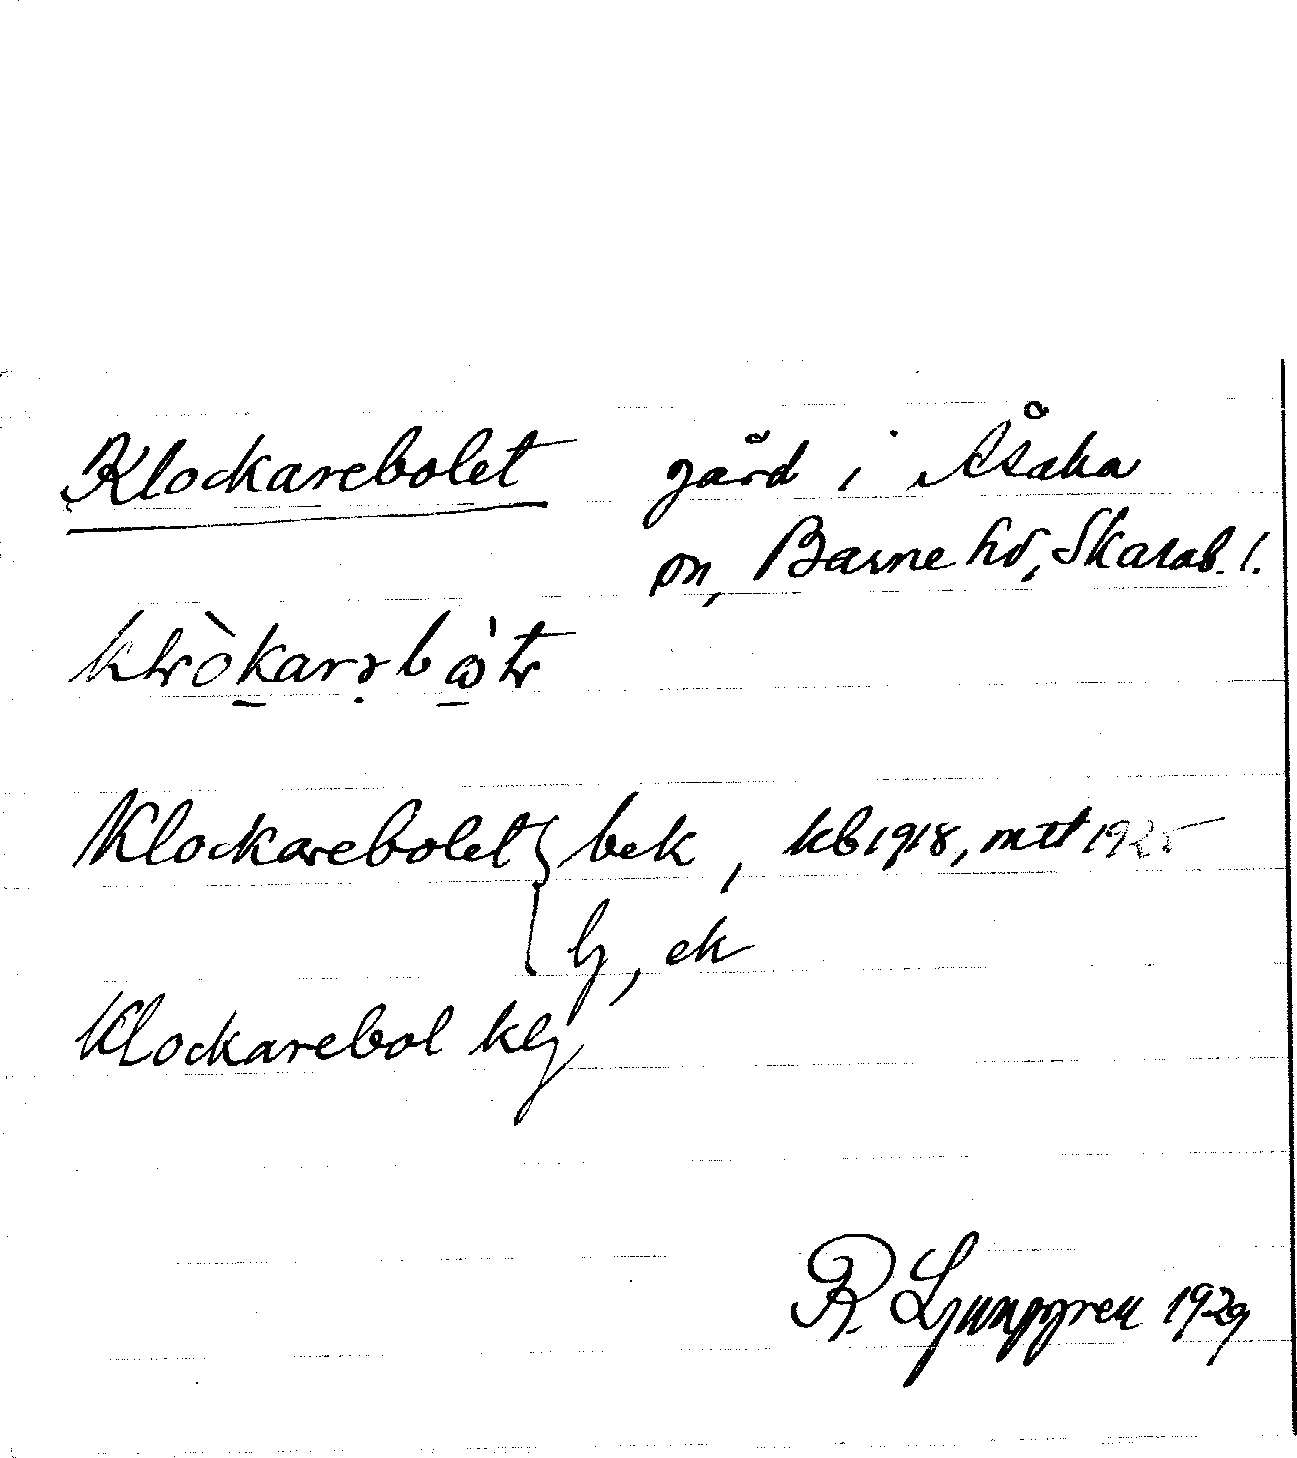 Klockarebolet gård i Åsaka
sn, Barne hd, Skarab. l.
Klockarebolet } bek, kb 1918, mtl 1925
lj, ek
Klockarebol klj
R. Ljunggren 1929